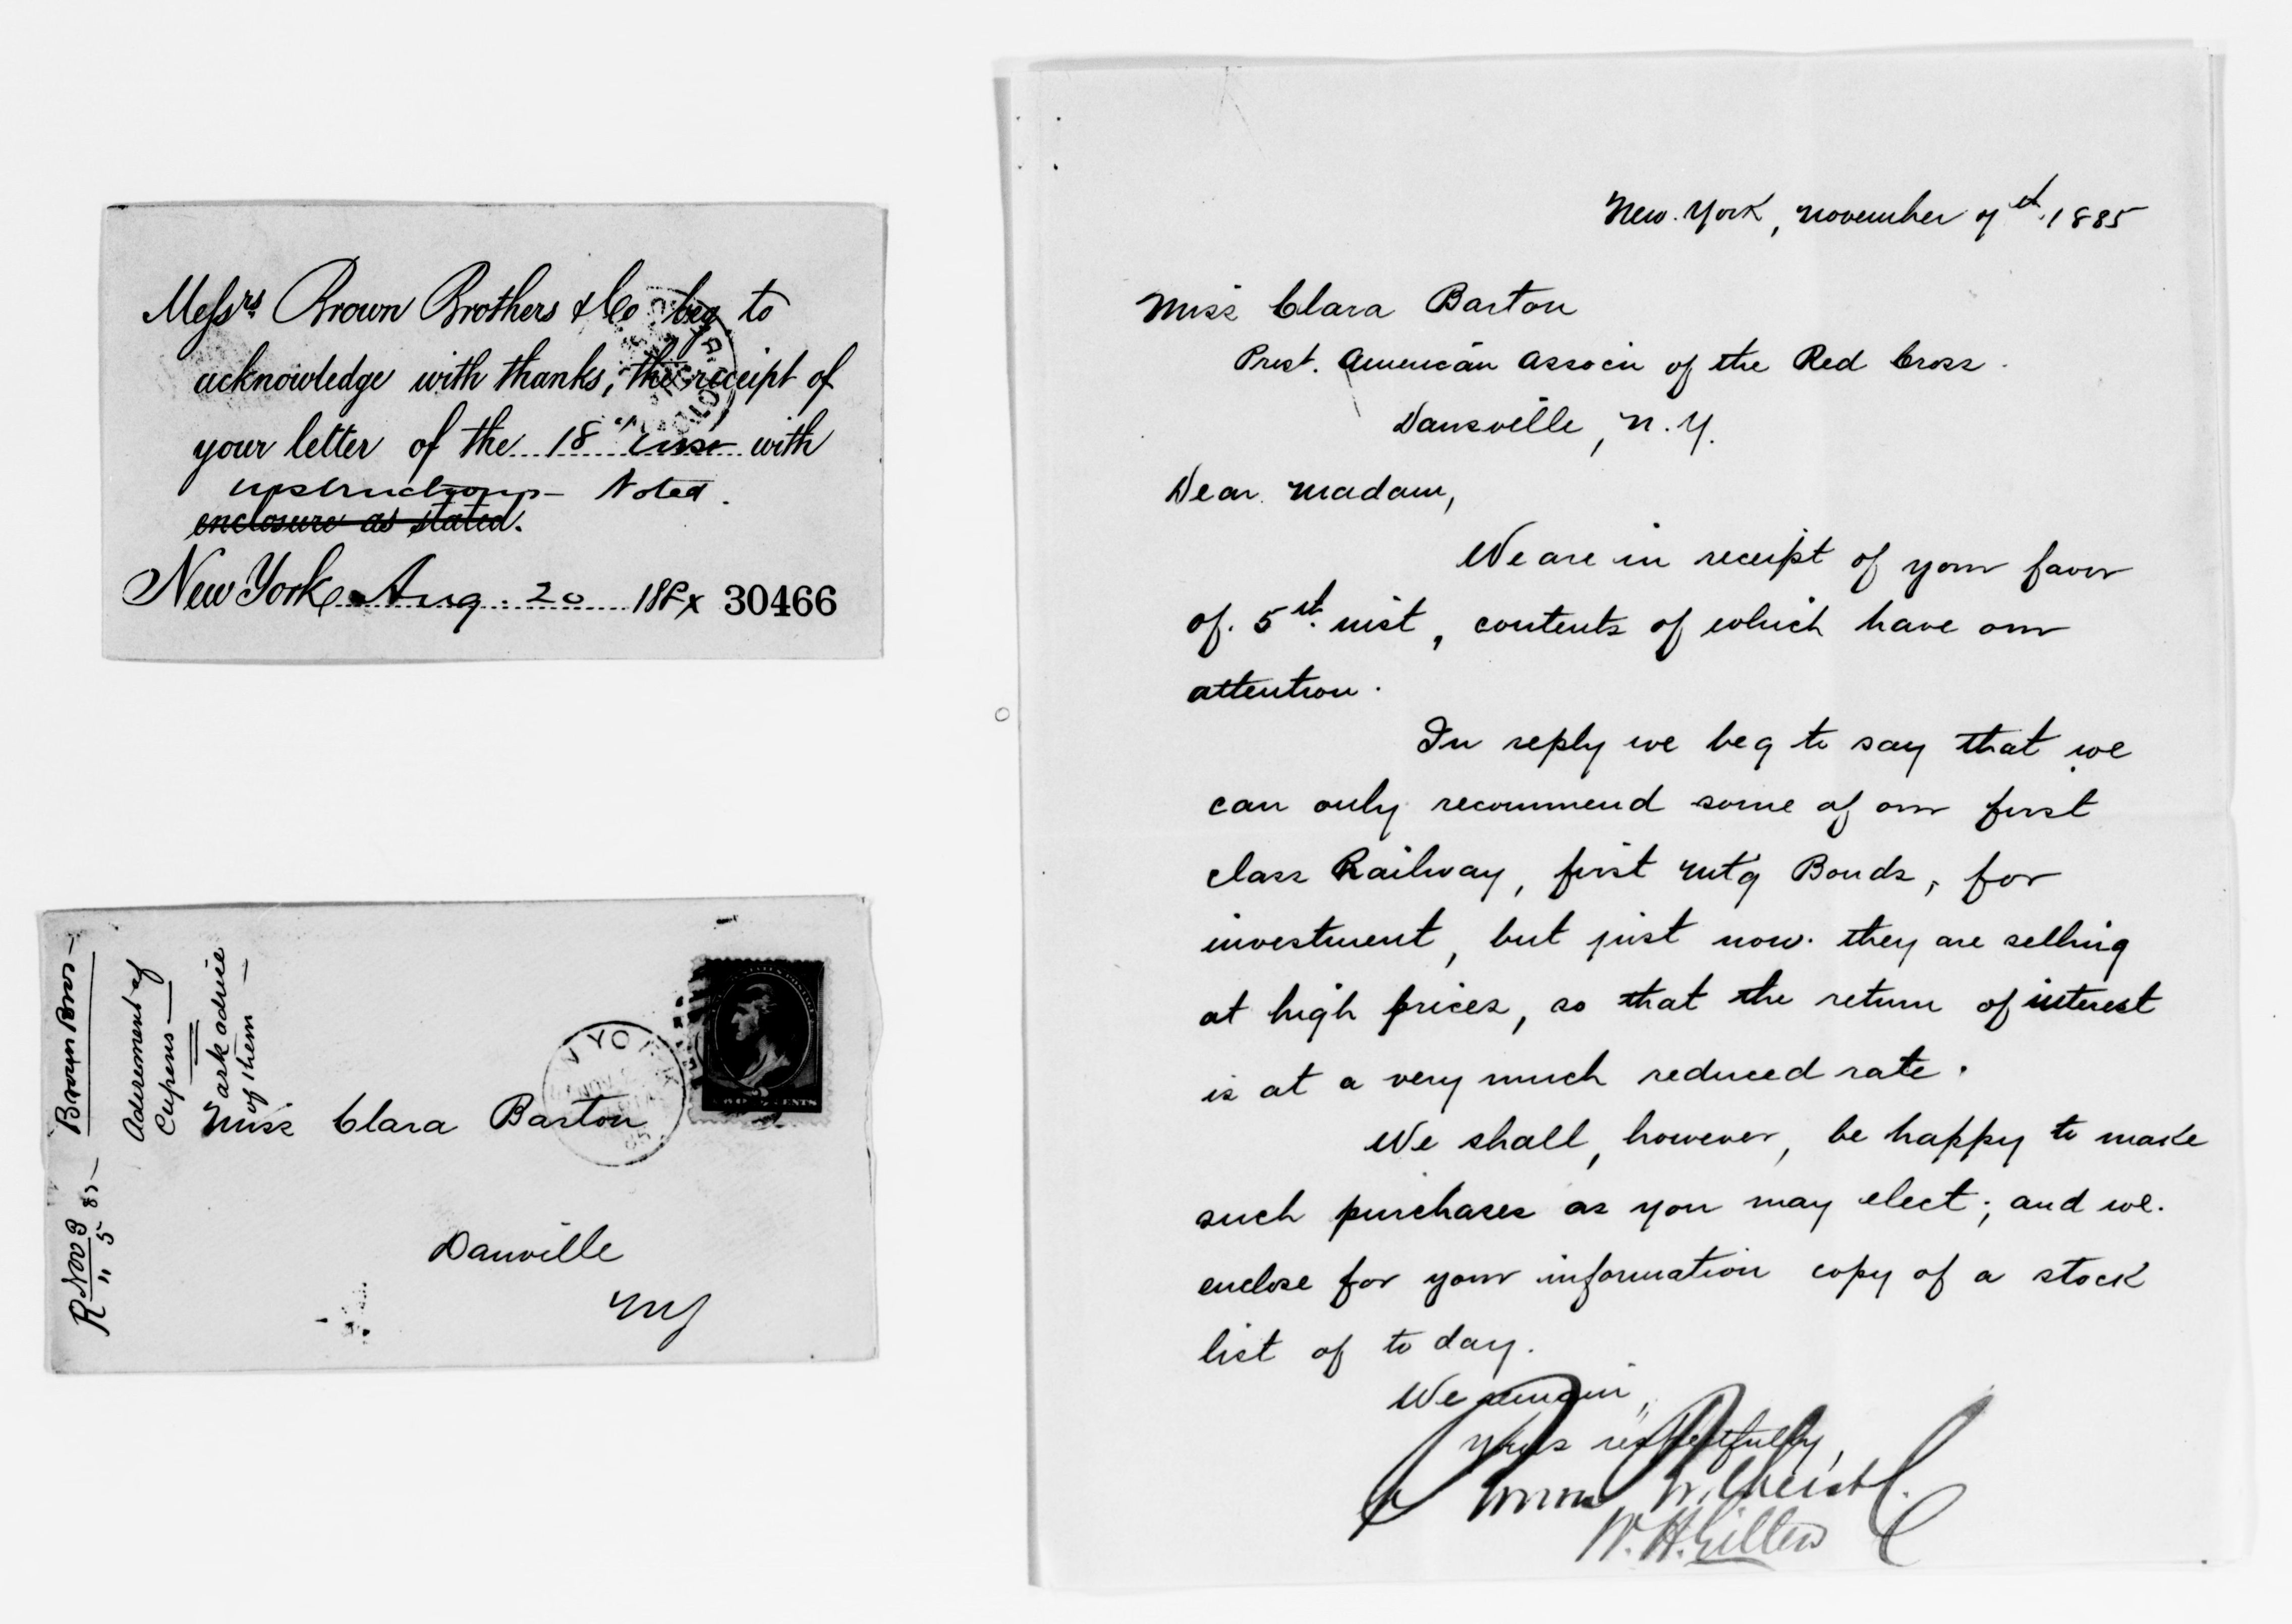 Messrs Brown Brothers & Co beg to
acknowledge with thanks, the receipt of
your letter of the 18th inst with
instructions Noted.
enclosure as stated.
New York Aug. 20 188x 30466
Brown Bros—
R Nov 3
" 5 85—
of
Cupons—
ask advice
of them—
Miss Clara Barton
Danville
NY
UNITED STATES POSTAGE
2
TWO CENTS
YORK
NOV
85
New York, November 7th 1885
Miss Clara Barton
Prest. American Associn of the Red Cross.
Dansville, N.Y.
Dear Madam,
We are in receipt of your favor
of 5th inst, contents of which have our
attention.
In reply we beg to say that we
can only recommend some of our first
class Railway, first Mt'g Bonds, for
investment, but just now they are selling
at high prices, so that the return of interest
is at a very much reduced rate.
We shall, however, be happy to make
such purchases as you may elect; and we
enclose for your information copy of a stock
list of to day.
We remain,
Yours respectfully,
W. H.